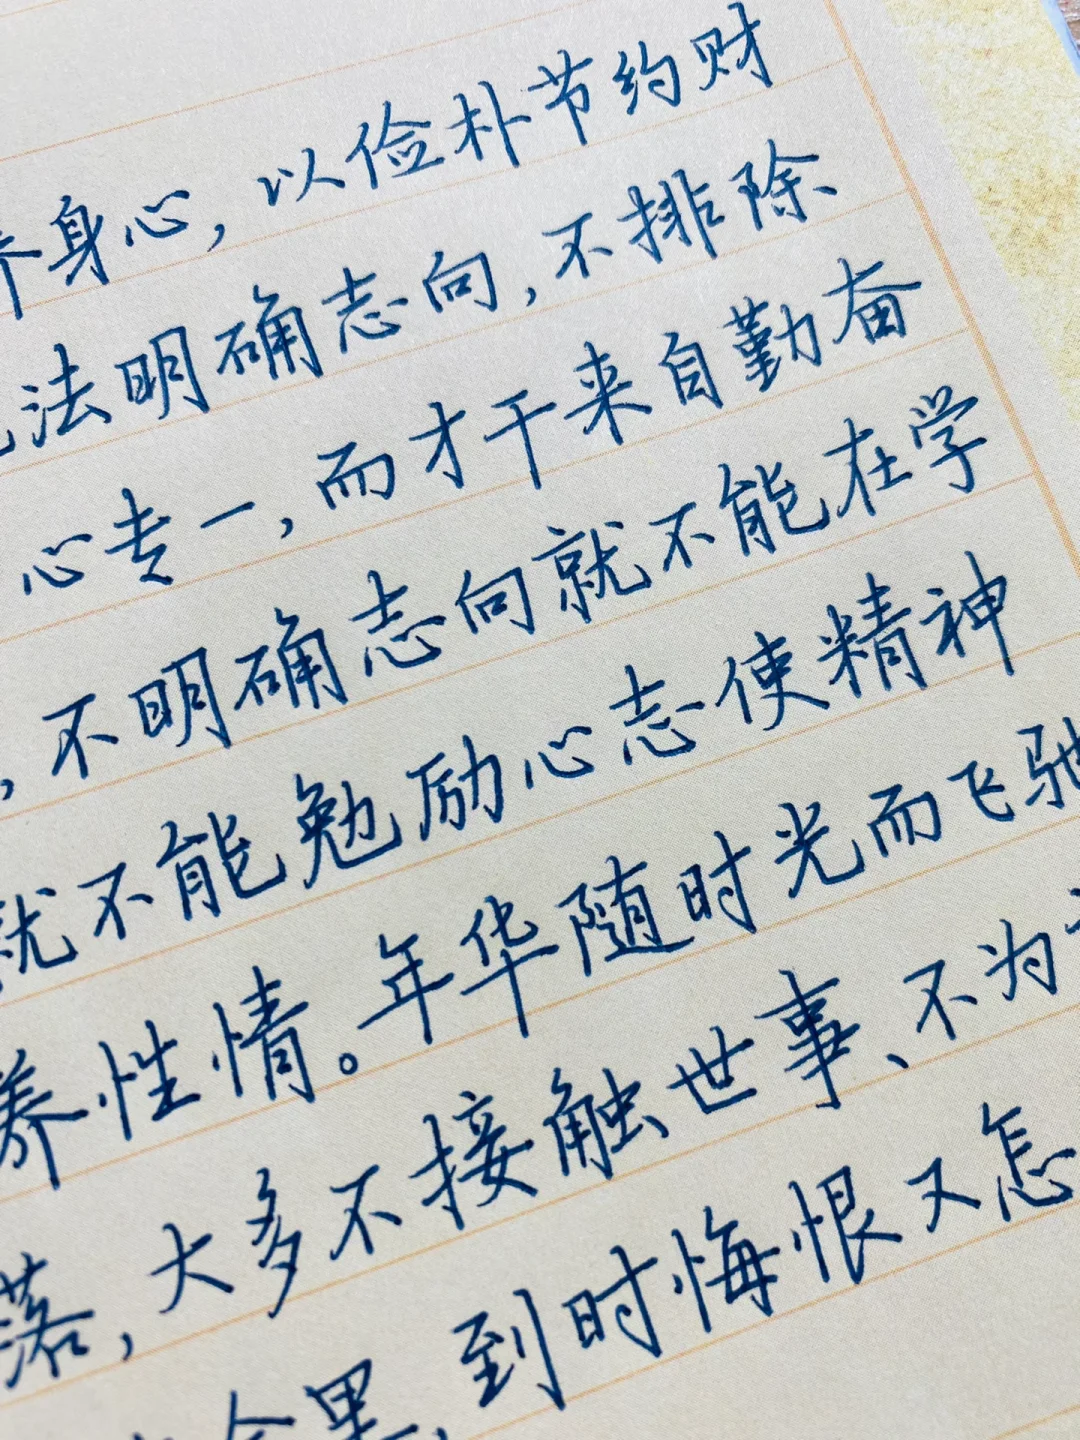 养身心，以俭朴节约财
法明确志向，不排除
心专一，而才干来自勤奋
，不明确志向就不能在学
就不能勉励心志使精神
养性情。年华随时光而飞驰
落，大多不接触世事、不为
里，到时悔恨又怎